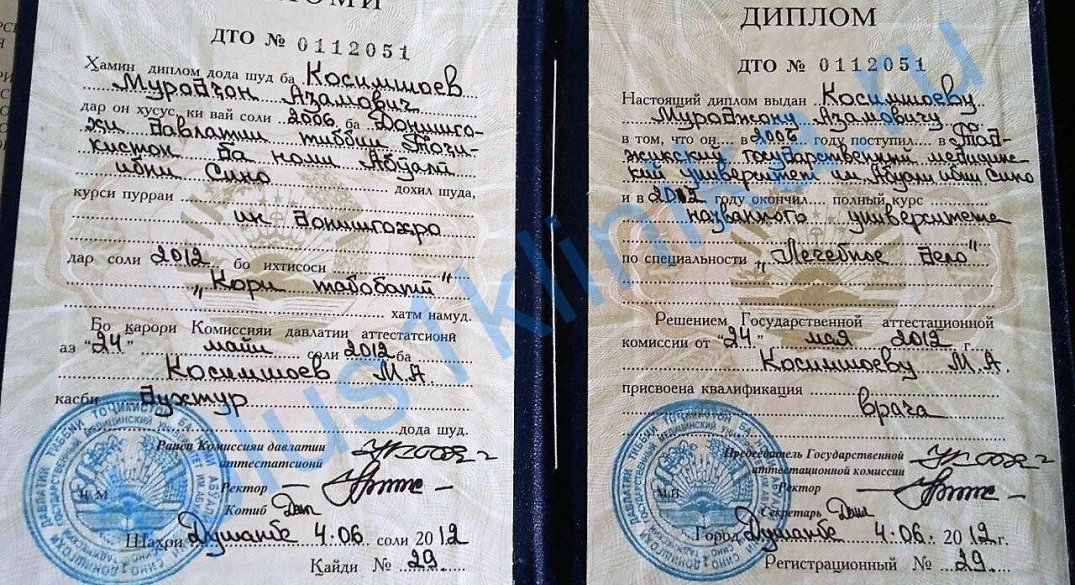 ДТО № 0112051
Ҳамин диплом дода шуд ба Косимшоев
Муроджон Азамович
дар он хусус, ки вай соли 2006 ба Донишго-
хи давлатии тиббии Тоҷи-
кистон ба номи Абуали
ибни Сино
дохил шуда,
курси пурраи
ин донишгохро
дар соли 2012 бо ихтисоси
"Кори табобатӣ"
хатм намуд.
Бо карори Комиссияи давлатии аттестатсионӣ
аз "24" майи соли 2012 ба
Косимшоев М.А.
касби духтур
дода шуд.
Раиси Комиссияи давлатии
аттестатсионӣ
Ректор
Котиб
Шаҳри Душанбе 4.06 соли 2012
Қайди № 29
ДИПЛОМ
ДТО № 0112051
Настоящий диплом выдан Косимшоеву
Муроджону Азамовичу
в том, что он в 2006 году поступил в Тад-
жикский государственный медицинс-
кий университет им. Абуали ибни Сино
и в 2012 году окончил полный курс
названного университета
по специальности "Лечебное дело"
Решением Государственной аттестационной
комиссии от "24" мая 2012 г.
Косимшоеву М.А.
присвоена квалификация
врача
Председатель Государственной
аттестационной комиссии
Ректор
М.П.
Секретарь
Город Душанбе 4.06. 2012 г.
Регистрационный № 29
plus1klinika.ru